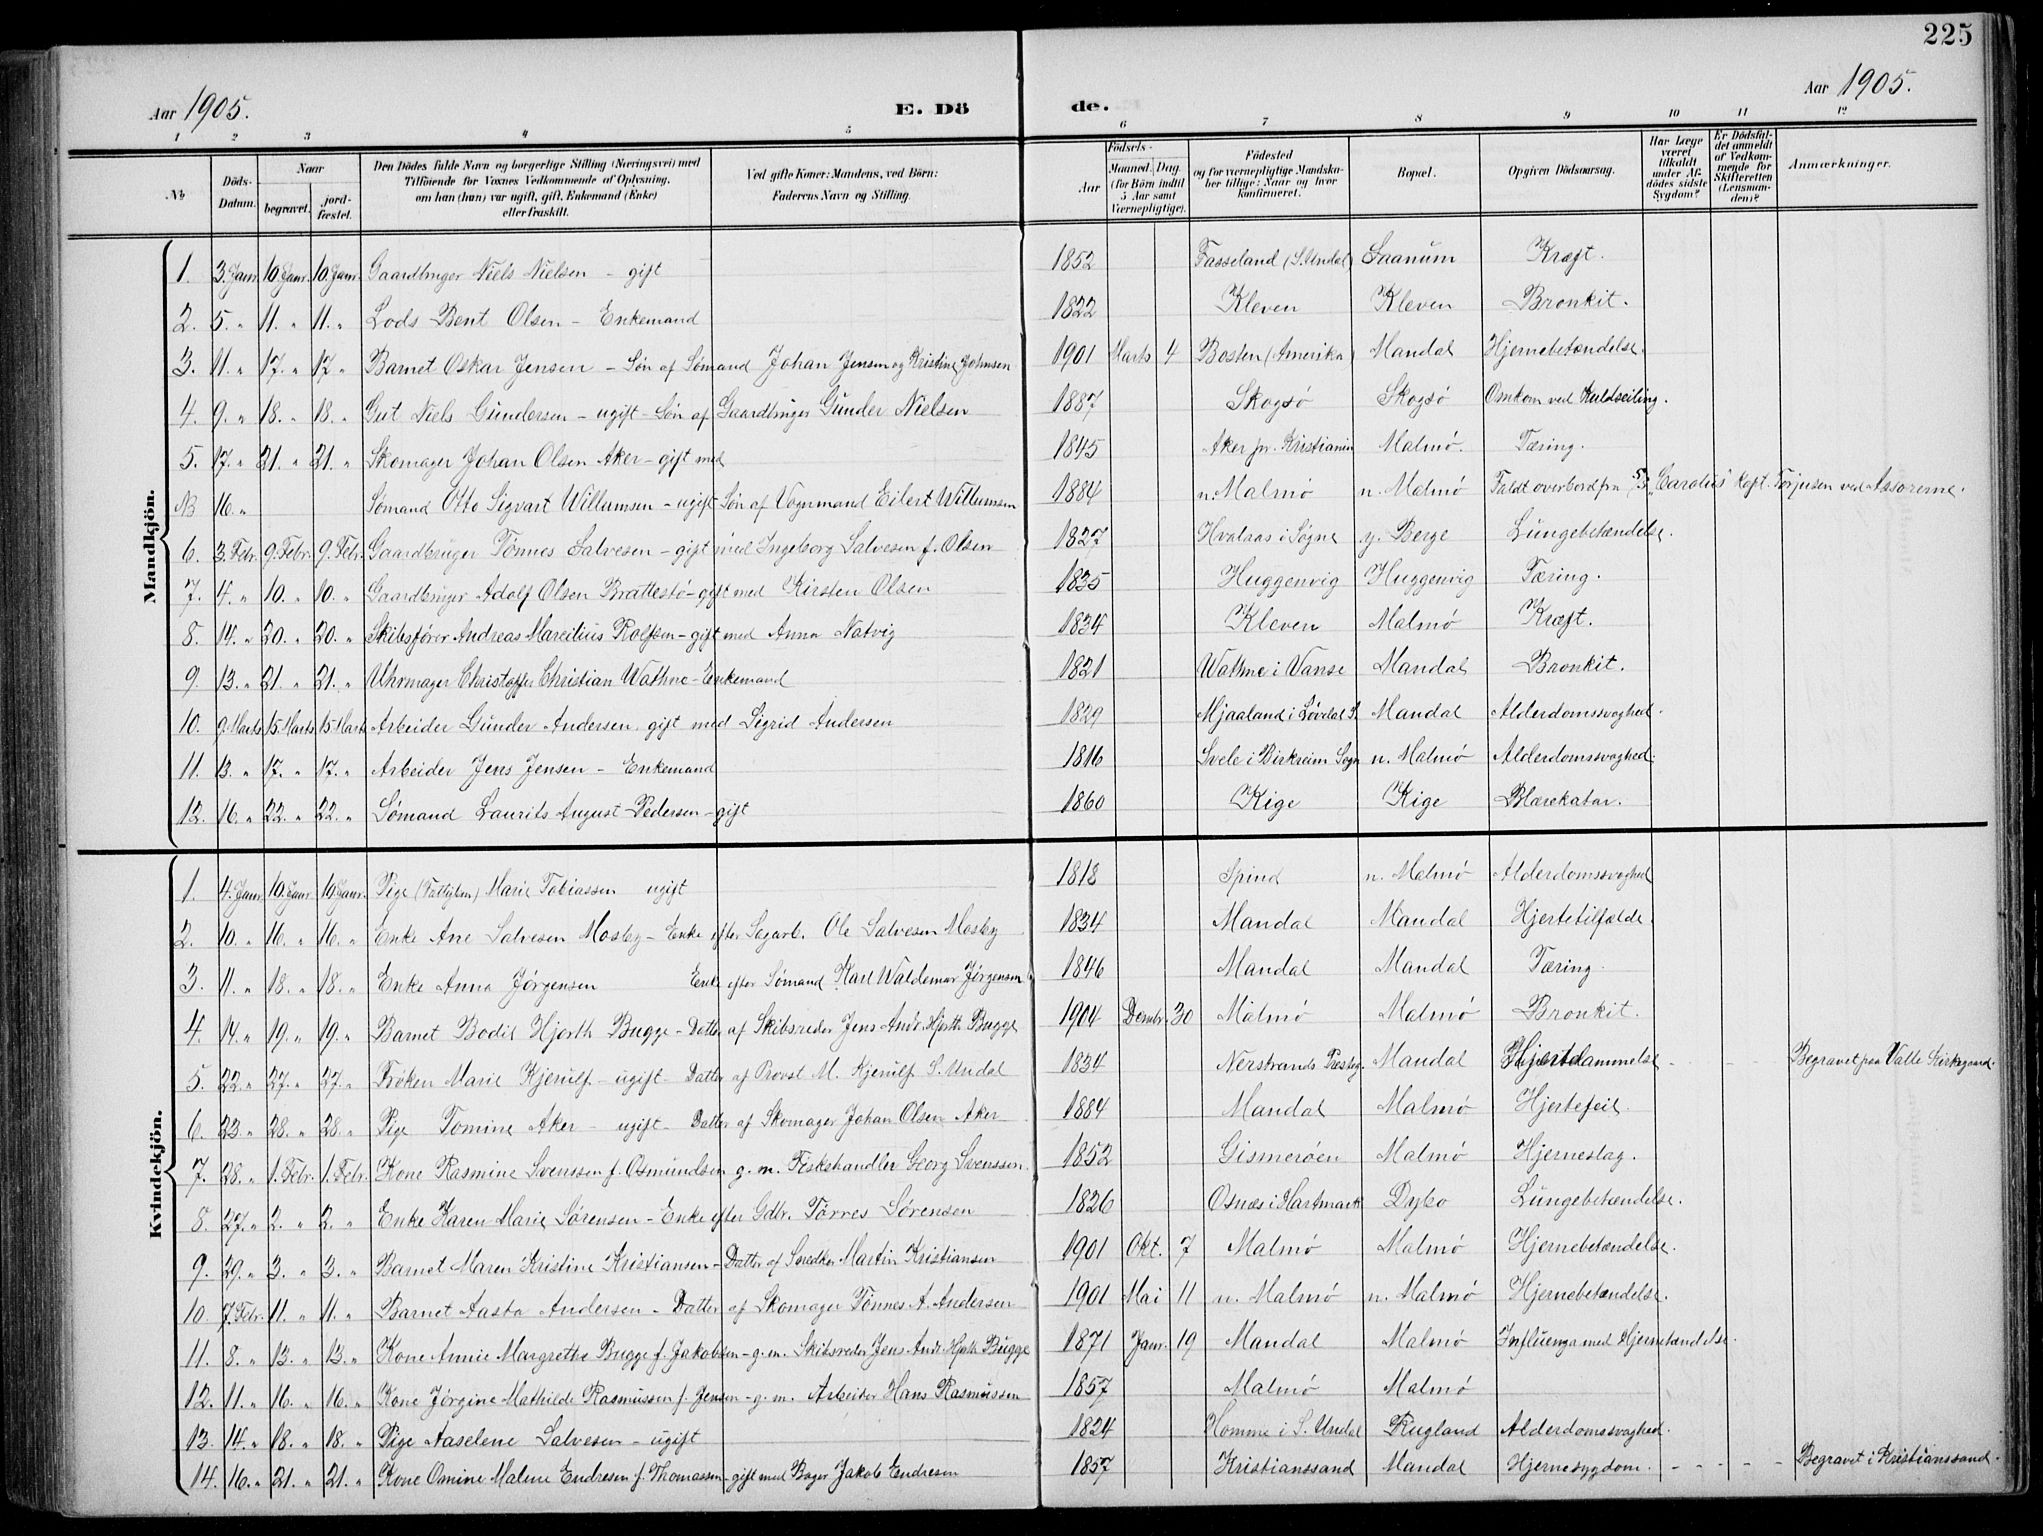 225
Aar 1905.
E. Dö
de.
Aar 1905.
1 2 3 4 5 6 7 8 9 10 11 12
№
Döds-Datum.
Naar
begravet.
jord-fæstet.
Den Dödes fulde Navn og borgerlige Stilling (Næringsvei) med Tilföiende for Voxnes Vedkommende af Oplysning, om han (hun) var ugift, gift, Enkemand (Enke) eller fraskilt.
Ved gifte Koner: Mandens, ved Börn: Faderens Navn og Stilling.
Födsels-
Aar
Maaned. Dag. (for Börn indtil 5 Aar samt Værnepligtige).
Födested og for værnepligtige Mandskaber tillige: Naar og hvor konfirmeret.
Bopæl.
Opgiven Dödsaarsag.
Har Læge været tilkaldt under Afdödes sidste Sygdom?
Er Dödsfaldet anmeldt af Vedkommende for Skifteretten (Lensmanden)?
Anmærkninger.
Mandkjön.
1. 3. Janr. 10. Janr. 10. Janr. Gaardbruger Niels Nielsen – gift 1852 Fasseland (S. Undal) Saanum Kræft.
2. 5. „ 11. „ 11. „ Lods Bent Olsen – Enkemand 1822 Kleven Kleven Bronkit.
3. 11. „ 17. „ 17 „ Barnet Oskar Jensen – Søn af Sømand Johan Jensen og Kristine Johnsen 1901 Marts 4 Bosten (Amerika) Mandal Hjernebetændelse.
4. 9. „ 18. „ 18. „ Gut Niels Gundersen – ugift – Søn af Gaardbruger Gunder Nielsen 1887 Skogsø Skogsø Omkom ved Kuldseiling.
5. 17. „ 21. „ 21. „ Skomager Johan Olsen Aker – gift med 1845 Aker pr. Kristiania Malmø. Tæring.
NB 16. „ Sømand Otto Sigvart Willumsen – ugift Søn af Vognmand Eilert Willumsen 1884 n. Malmø n. Malmø Faldt overbord fra „Carolus" Kapt. Torjusen ved Assorerne.
6. 3. Febr. 9. Febr. 9. Febr. Gaardbruger Tønnes Salvesen – gift med Ingeborg Salvesen f. Olsen 1827 Hvalsas i Søgne y. Berge Lungebetændelse.
7. 4. „ 10. „ 10. „ Gaardbruger Adolf Olsen Brattestø – gift med Kirsten Olsen 1835 Huggenvig Huggenvig Tæring.
8. 14. „ 20. „ 20. „ Skibsfører Andreas Marcilius Rolfsen – gift med Anna Natvig 1834 Kleven Malmø Kræft.
9. 13. „ 21. „ 21. „ Uhrmager Christoffer Christian Wathne – Enkemand 1821 Wathne i Vanse Mandal Bronkit.
10. 9. Marts 15. Marts 15. Marts Arbeider Gunder Andersen, gift med Sigrid Andersen 1829 Mjaaland i Løvdal S. Mandal Alderdomssvaghed.
11. 13. „ 17. „ 17. „ Arbeider Jens Jensen – Enkemand 1816 Svele i Birkreim Sogn n. Malmø Alderdomssvaghed.
12. 16. „ 22. „ 22. „ Sømand Laurits August Pedersen – gift 1860 Kige Kige Blærekatar.
Kvindekjön.
1. 4. Janr. 10. Janr. 10. Janr. Pige (Fattiglem) Marie Tobiassen ugift 1818 Spind n. Malmø Alderdomssvaghed
2. 10. „ 16. „ 16. „ Enke Ane Salvesen Mosby – Enke efter Sagarb. Ole Salvesen Mosby 1834 Mandal Mandal Hjertetilfælde.
3. 11. „ 18. „ 18. „ Enke Anna Jørgensen Enke efter Sømand Karl Waldemar Jørgensen 1846 Mandal Mandal Tæring.
4. 14. „ 19. „ 19. „ Barnet Bodil Hjorth Bugge – Datter af Skibsreder Jens Andr. Hjorth Bugge 1904 Dcmbr. 30 Malmø Malmø Bronkit.
5. 22. „ 27. „ 27. „ Frøken Marie Kjerulf – ugift – Datter af Provst M. Kjerulf S. Undal 1834 Nerstrands Prestg. Mandal Hjertelammelse – – – Begravet paa Valle Kirkegaard.
6. 23. „ 28. „ 28. „ Pige Tomine Aker – ugift – Datter af Skomager Johan Olsen Aker 1884 Mandal Malmø Hjertefeil.
7. 28. „ 1. Febr. 1. Febr. Kone Rasmine Svenssen f. Osmundsen g. m. Fiskehandler Georg Svenssen 1852 Gismerøen Malmø Hjerneslag.
8. 27. „ 2. „ 2. „ Enke Karen Marie Sørensen – Enke efter Gdbr. Tørres Sørensen 1826 Osnæs i Hartmark Dybo Lungebetændelse.
9. 29. „ 3. „ 3. „ Barnet Maren Kristine Kristiansen – Datter af Snedker Martin Kristiansen 1901 Okt. 7 Malmø Malmø Hjernebetændelse.
10. 7. Febr. 11. „ 11. „ Barnet Aasta Andersen – Datter af Skomager Tønnes A. Andersen 1901 Mai 11 n. Malmø n. Malmø Hjernebetændelse.
11. 8. „ 13. „ 13. „ Kone Annie Margrethe Bugge f. Jakobsen – g. m. Skibsreder Jens Andr. Hjorth Bugge 1871 Janr. 19 Mandal Malmø Influenza med Hjernebetændelse.
12. 11. „ 16. „ 16. „ Kone Jørgine Mathilde Rasmussen f. Jensen – g. m. Arbeider Hans Rasmussen 1857 Malmø Malmø
13. 14. „ 18. „ 18. „ Pige Aaselene Salvesen – ugift 1824 Homme i S. Undal Rugland Alderdomssvaghed.
14. 16. „ 21. „ 21. „ Kone Omine Malene Endresen f. Thomassen – gift med Bager Jakob Endresen 1857 Kristianssand Mandal Hjernesygdom. – – – – Begravet i Kristianssand.